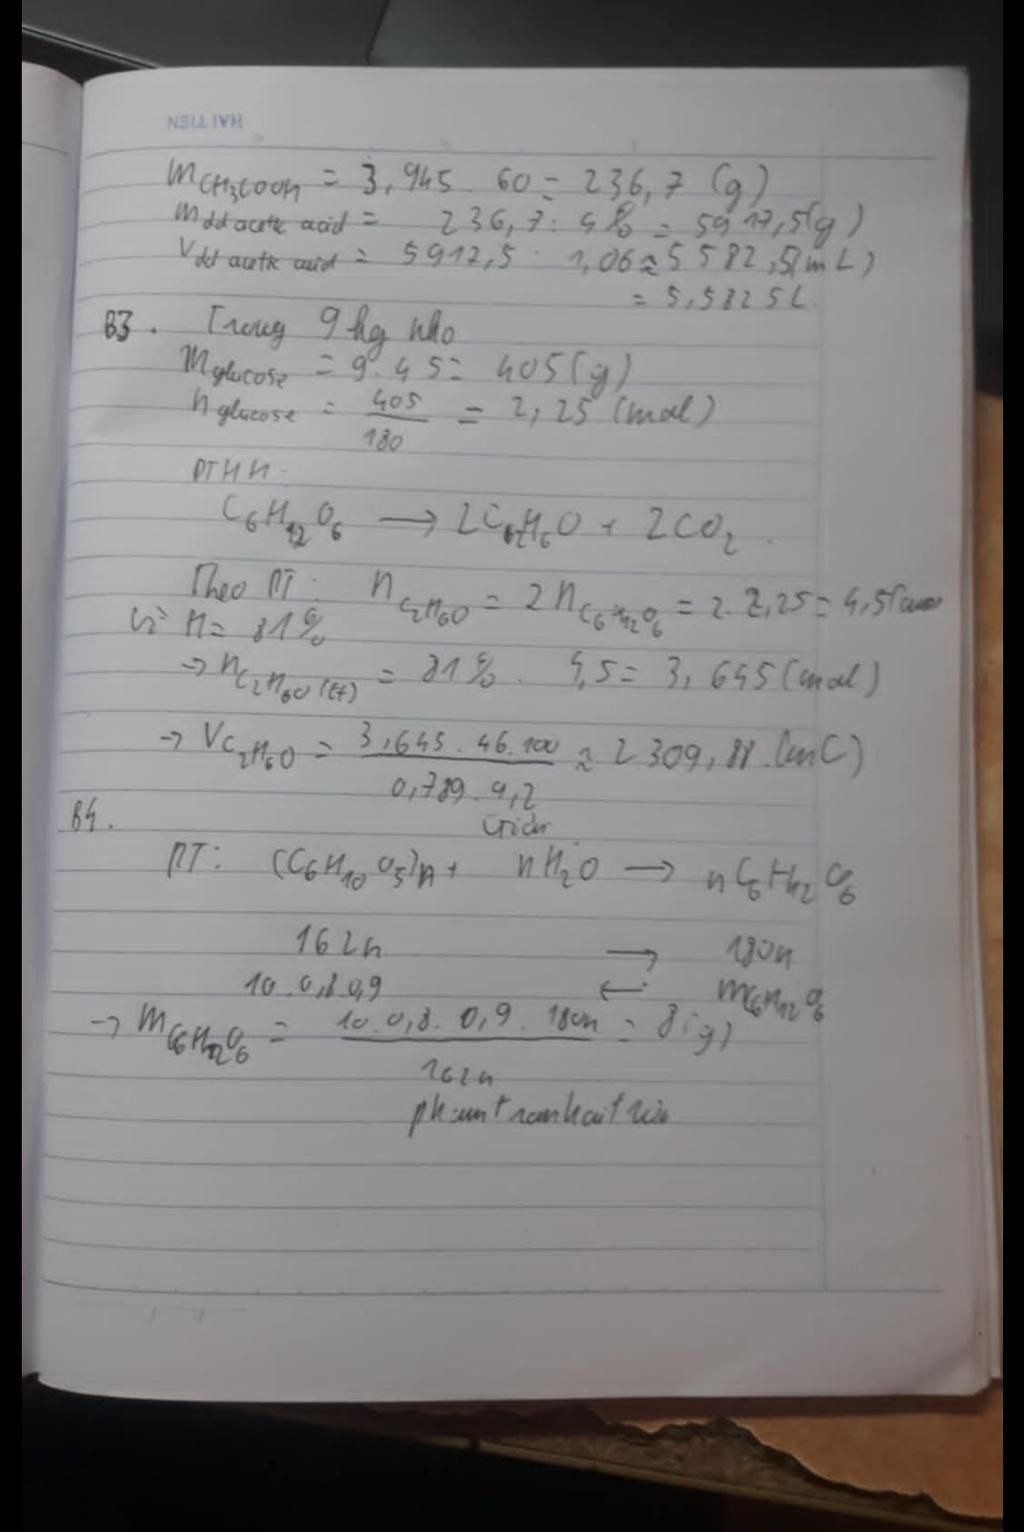 HẢI TIẾN
m CH3COOH = 3,945 . 60 = 236,7 (g)
m dd acetic acid = 236,7 : 4% = 5917,5 (g)
V dd acetic acid = 5917,5 : 1,06 ≈ 5582,5 (mL)
= 5,5825 L
B3. Trong 9 kg nho
m glucose = 9 . 45 = 405 (g)
n glucose = 405/180 = 2,25 (mol)
PTHH:
C6H12O6 → 2C2H6O + 2CO2
Theo PT: n C2H6O = 2 n C6H12O6 = 2 . 2,25 = 4,5
Vì H = 81%
→ n C2H6O (tt) = 81% . 4,5 = 3,645 (mol)
→ V C2H6O = 3,645 . 46 . 100 / 0,789 . 9,2 ≈ 2309,88 (mL)
B4.
PT: (C6H10O5)n + nH2O → nC6H12O6
162n → 180n
10 . 0,8 . 0,9 ← m C6H12O6
→ m C6H12O6 = 10 . 0,8 . 0,9 . 180n / 162n = 8 (g)